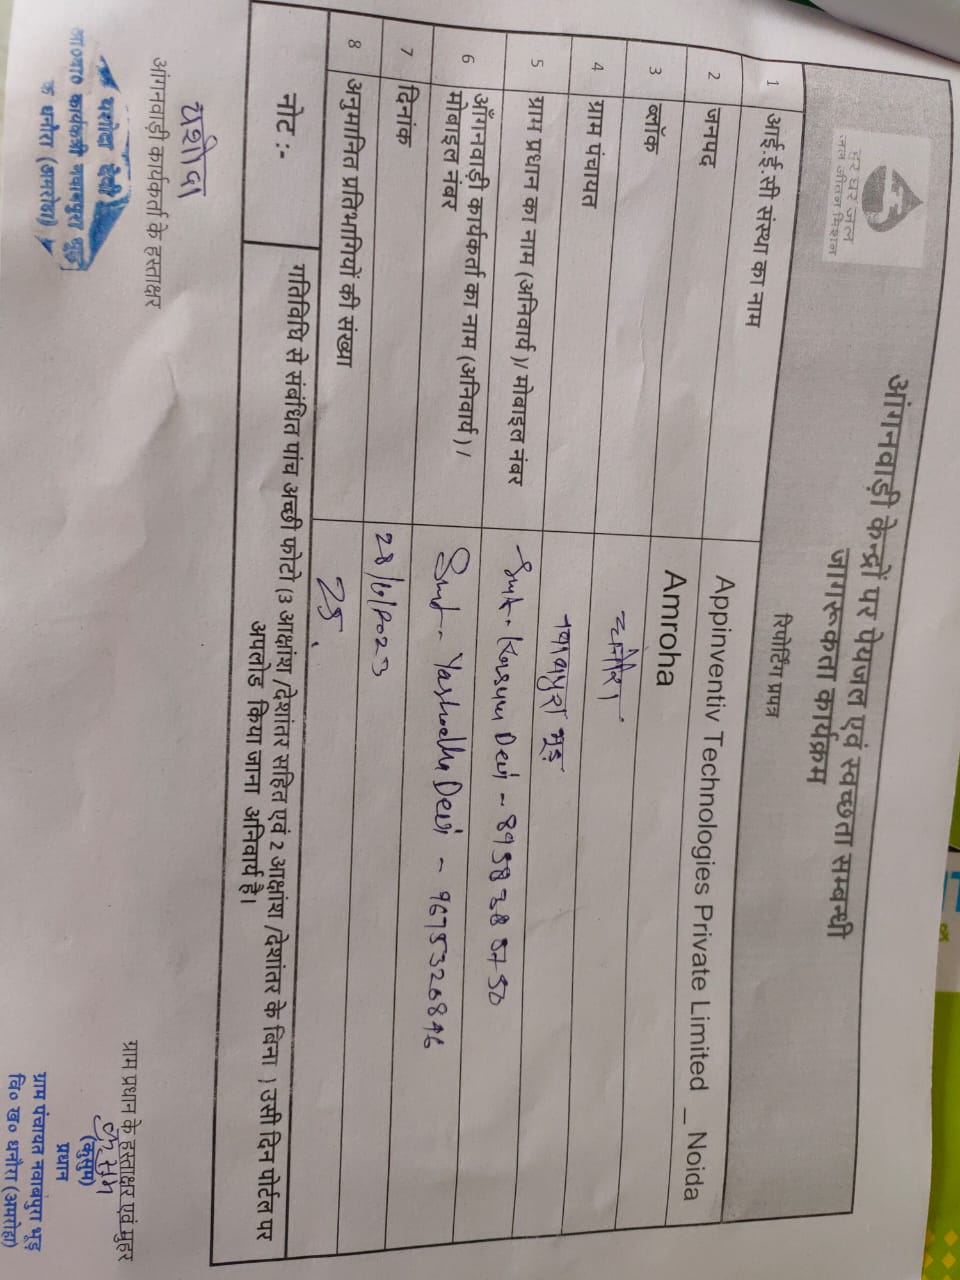 हर घर जल
जल जीवन मिशन
आंगनवाड़ी केन्द्रों पर पेयजल एवं स्वच्छता सम्बन्धी
जागरूकता कार्यक्रम
रिपोर्टिंग प्रपत्र
1 आई.ई.सी संस्था का नाम Appinventiv Technologies Private Limited _ Noida
2 जनपद Amroha
3 ब्लॉक धनौरा
4 ग्राम पंचायत नवाबपुरा भूड़
5 ग्राम प्रधान का नाम (अनिवार्य )/ मोबाइल नंबर Smt. Kusum Devi - 8958385750
6 आँगनवाड़ी कार्यकर्ता का नाम (अनिवार्य ) / Smt. Yashodha Devi - 9675326846
मोबाइल नंबर
7 दिनांक 28/6/2023
8 अनुमानित प्रतिभागियों की संख्या 25
नोट :- गतिविधि से संबंधित पांच अच्छी फोटो (3 आक्षांश /देशांतर सहित एवं 2 आक्षांश /देशांतर के बिना ) उसी दिन पोर्टल पर
अपलोड किया जाना अनिवार्य है।
यशोदा
आंगनवाड़ी कार्यकर्ता के हस्ताक्षर
यशोदा देवी
आ०वा० कार्यकत्री नवाबपुरा भूड़
धनौरा (अमरोहा)
ग्राम प्रधान के हस्ताक्षर एवं मुहर
कुसुम
(कुसुम)
प्रधान
ग्राम पंचायत नवाबपुरा भूड़
वि० ख० धनौरा (अमरोहा)